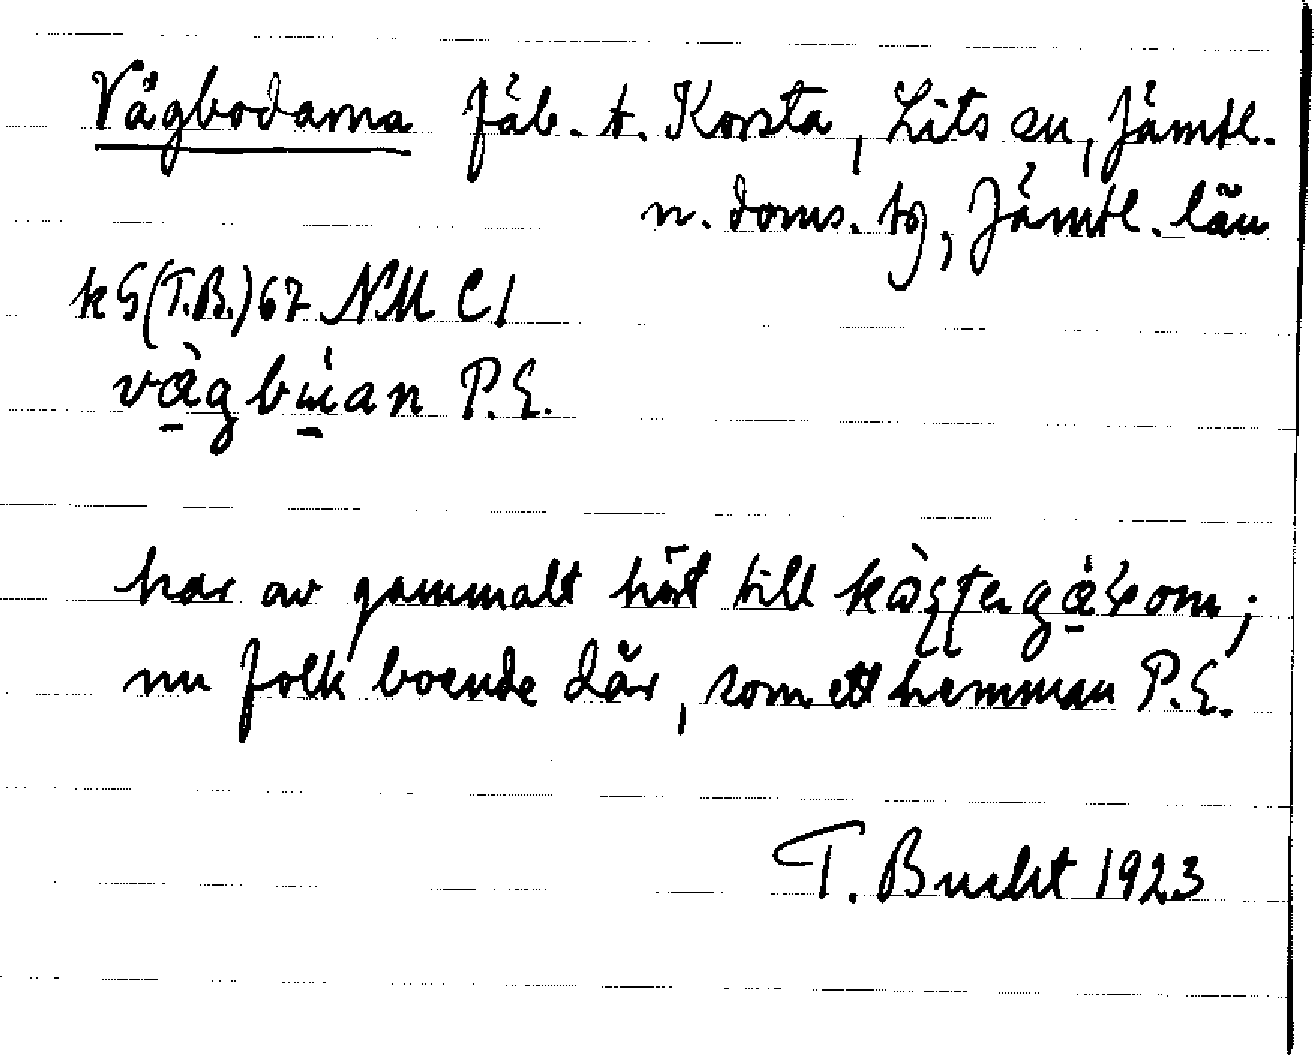 Vågbodarna fäb. t. Korsta, Lits sn, Jämtl.
n. doms. tg, Jämtl. län
k G (T.B.) 67 NM C1
P.E.
har av gammalt hört till
nu folk boende där, som ett hemman P.E.
T. Bucht 1923